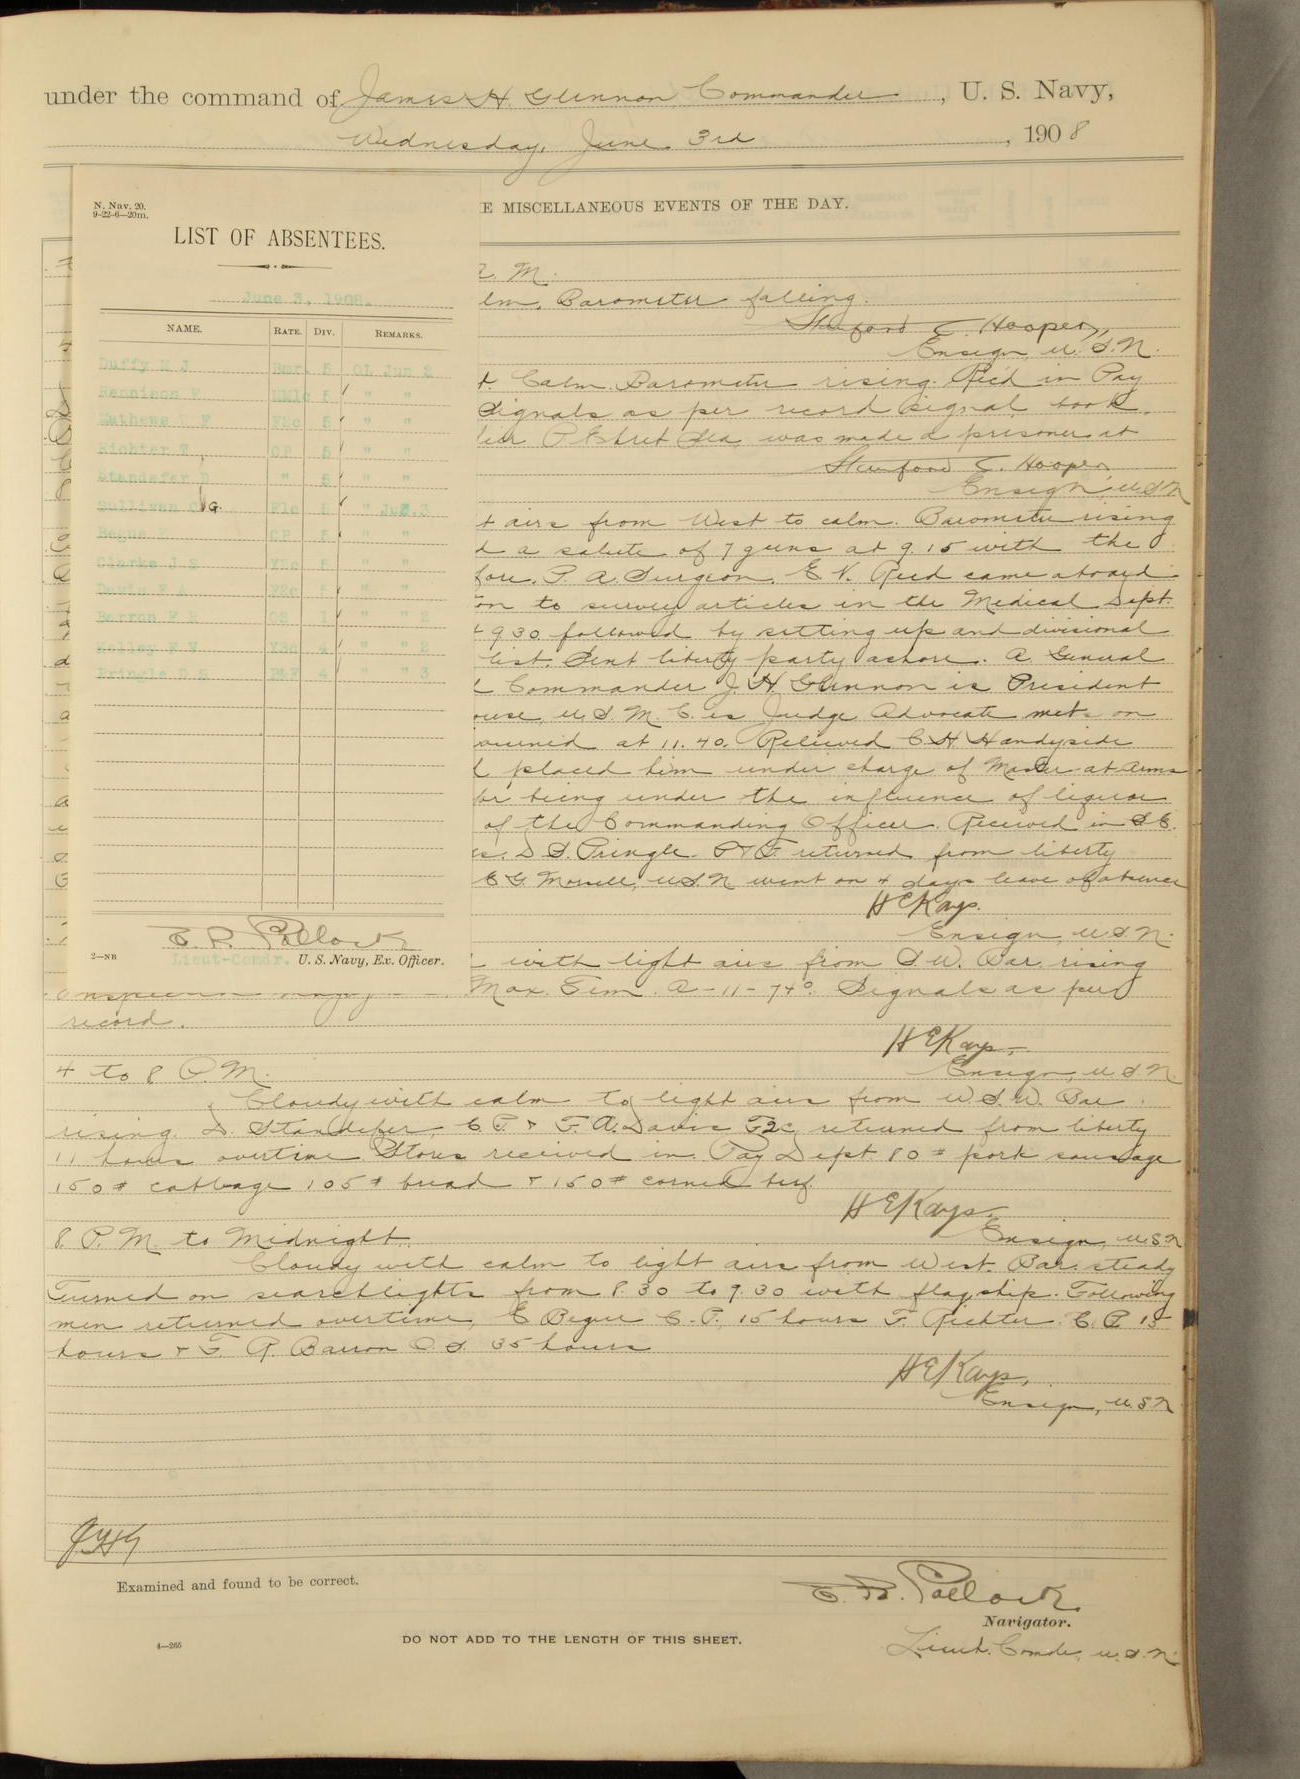 under the command of James H. Glennon Commander, U. S. Navy,
Wednesday, June 3rd, 1908
N. Nav. 20.
9-22-6—20m.
LIST OF ABSENTEES.
June 3, 1908.
NAME. RATE. DIV. REMARKS.
Duffy M J 5 OL Jun 2
Rennison F 5 " "
Mathews F 5 " "
Richter F, CP 5 " "
Standefer D " 5 " "
Sullivan G. F1c 5 " Jun.3
Begue E CP 5 " "
Clarke J.S 5 " "
Davis F.A. F2c 5 " "
Barron F R OS 1 " " 2
Kelley F V 4 " " 2
Pringle D S P&F 4 " " 3
E. P. Pollock
Lieut-Comdr. U. S. Navy, Ex. Officer.
2—NB
E MISCELLANEOUS EVENTS OF THE DAY.
M.
lm. Barometer falling.
Stanford C. Hooper,
Ensign, U.S.N.
t. Calm. Barometer rising. Rec'd in Pay
Signals as per record signal book.
Sea, was made a prisoner at
Stanford C. Hooper
Ensign U.S.N
t airs from West to calm. Barometer rising
d a salute of 7 guns at 9.15 with the
fore. P. A. Surgeon, E. V. Reed came aboard
on to survey articles in the Medical Dept.
9.30 followed by setting up and divisional
list. Sent liberty party ashore. A General
Commander J. H. Glennon is President
ouse, U.S.M.C. is Judge Advocate met on
ourned at 11.40. Relieved C. H. Handyside
placed him under charge of Master-at-Arms
or being under the influence of liquor
of the Commanding Officer. Received in S.E.
D. S. Pringle P&F. returned from liberty
U.S.N went on 4 days leave of absence
H E Kays.
Ensign, U.S.N.
with light airs from S.W. Bar. rising
Max. Tem. A-11-74°. Signals as per
record.
H E Kays.
Ensign, U.S.N.
4 to 8 P.M.
Cloudy with calm to light airs from W.S.W. Bar.
rising. D. Standefer, C.P. & F. A. Davis F2c returned from liberty
11 hours overtime. Stores received in Pay Dept. 80# pork sausage
150# cabbage 105# bread & 150# corned beef.
H E Kays.
Ensign, U.S.N
8. P.M. to Midnight.
Cloudy with calm to light airs from West. Bar. steady
Turned on searchlights from 8.30 to 9.30 with flagship. Following
men returned overtime, E Begue C.P. 15 hours F. Richter C.P. 15
hours & F. R. Barron O.S. 35 hours
H E Kays.
Ensign, U.S.N
JHG
Examined and found to be correct.
E. P. Pollock
Navigator.
Lieut. Comdr, U.S.N.
4—265
DO NOT ADD TO THE LENGTH OF THIS SHEET.